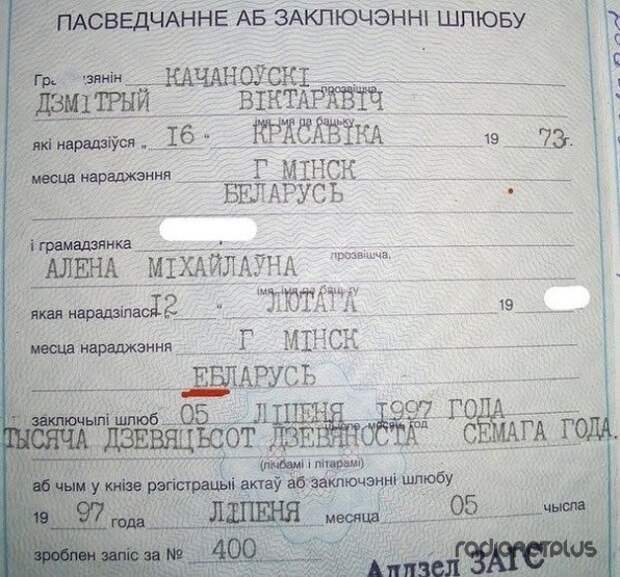 ПАСВЕДЧАННЕ АБ ЗАКЛЮЧЭННІ ШЛЮБУ
Гр зянін КАЧАНОЎСКІ
прозвішча
ДЗМІТРЫЙ ВІКТАРАВІЧ
імя, імя па бацьку
які нарадзіўся „ 16 " КРАСАВІКА 19 73г.
месца нараджэння Г МІНСК
БЕЛАРУСЬ
і грамадзянка
прозвішча,
АЛЕНА МІХАЙЛАЎНА
імя, імя па бацьку
якая нарадзілася 12 " ЛЮТАГА 19
месца нараджэння Г МІНСК
ЕБЛАРУСЬ
заключылі шлюб 05 ЛІПЕНЯ 1997 ГОДА
чысло, месяц, год
ТЫСЯЧА ДЗЕВЯЦЬСОТ ДЗЕВЯНОСТА СЕМАГА ГОДА.
(лічбамі і літарамі)
аб чым у кнізе рэгістрацыі актаў аб заключэнні шлюбу
19 97 года ЛІПЕНЯ месяца 05 чысла
зроблен запіс за № 400
radionetplus
Аддзел ЗАГС